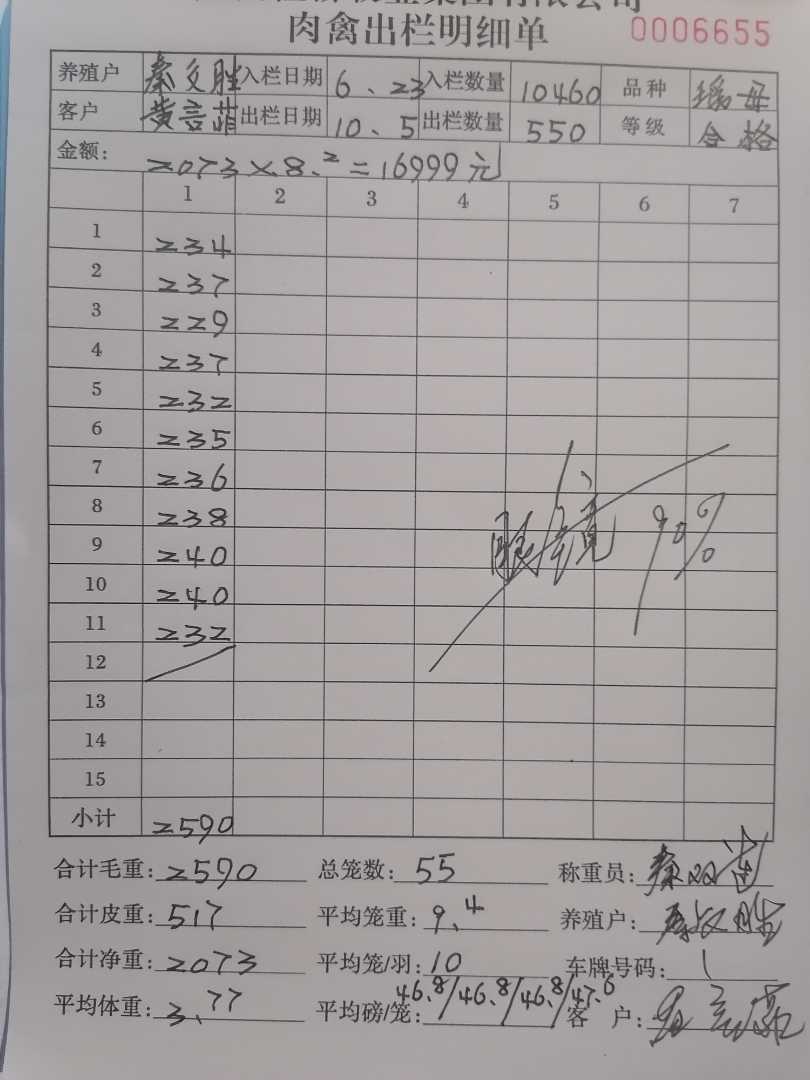 集团有限公司
肉禽出栏明细单 0006655
养殖户 秦文胜 入栏日期 6、23 入栏数量 10460 品种 瑶母
客户 黄言菲 出栏日期 10、5 出栏数量 550 等级 合格
金额: 2073×8.2=16999元
1 2 3 4 5 6 7
1 234
2 237
3 229
4 237
5 232
6 235
7 236
8 238
9 240
10 240
11 232
12
13
14
15
小计 2590
90%
合计毛重: 2590 总笼数: 55 称重员:
合计皮重: 517 平均笼重: 9.4 养殖户:
合计净重: 2073 平均笼/羽: 10 车牌号码:
平均体重: 3.77 平均磅/笼: 46.8/46.8/46.8/47.6 客户: